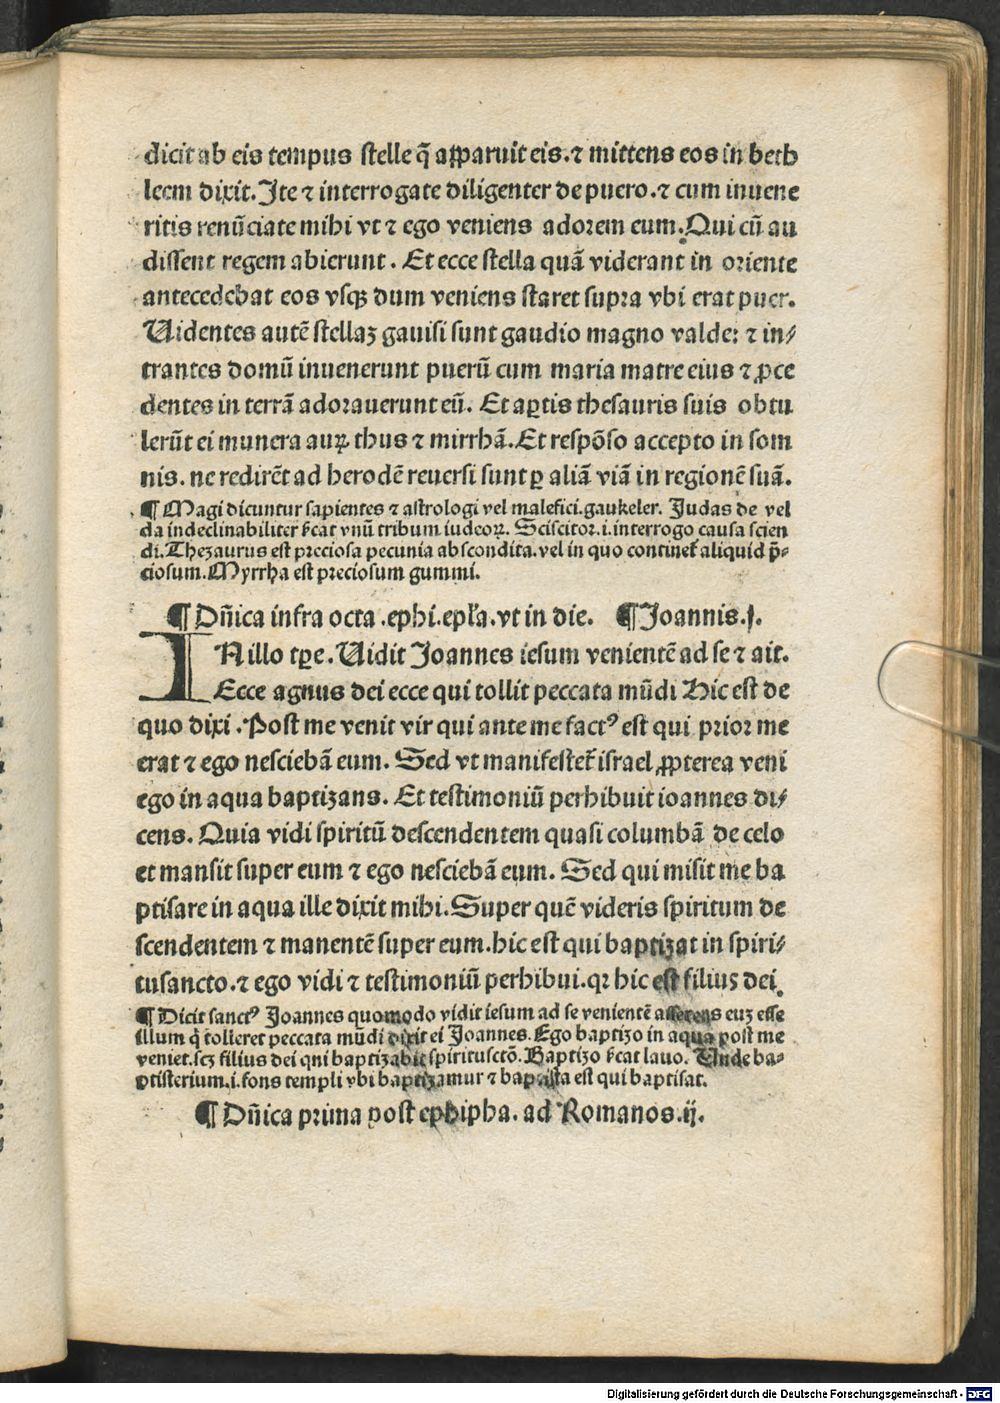 dicit ab eis tempus stelle q̃ apparuit eis. ⁊ mittens eos in beth
leem dixit. Ite ⁊ interrogate diligenter de puero. ⁊ cum inuene
ritis renũciate mihi vt ⁊ ego veniens adorem eum. Qui cũ au
dissent regem abierunt. Et ecce stella quã viderant in oriente
antecedebat eos vsqꝫ dum veniens staret supra vbi erat puer.
Uidentes autẽ stellaꝫ gauisi sunt gaudio magno valde: ⁊ in⸗
trantes domũ inuenerunt puerũ cum maria matre eius ⁊ ꝓce
dentes in terrã adorauerunt eũ. Et aꝑtis thesauris suis obtu
lerũt ei munera auꝝ thus ⁊ mirrhã. Et respõso accepto in som
nis. ne redirẽt ad herodẽ reuersi sunt ꝑ aliã viã in regionẽ suã.
¶ Magi dicuntur sapientes ⁊ astrologi vel malefici. gaukeler. Judas de vel
da indeclinabiliter ſ̃cat vnũ tribum iudeoꝝ. Sciscitor. i. interrogo causa scien
di. Thezaurus est preciosa pecunia abscondita. vel in quo continet᷑ aliquid p̃⸗
ciosum. Myrrha est preciosum gummi.
¶ Dñica infra octa. ephi. epl̃a. vt in die. ¶ Joannis. j.
IN illo tꝑe. Uidit Joannes iesum venientẽ ad se ⁊ ait.
Ecce agnus dei ecce qui tollit peccata mũdi Hic est de
quo dixi. Post me venit vir qui ante me factꝰ est qui prior me
erat ⁊ ego nesciebã eum. Sed vt manifestet᷑ israel ꝓpterea veni
ego in aqua baptizans. Et testimoniũ perhibuit ioannes di⸗
cens. Quia vidi spiritũ descendentem quasi columbã de celo
et mansit super eum ⁊ ego nesciebã eum. Sed qui misit me ba
ptisare in aqua ille dixit mihi. Super quẽ videris spiritum de
scendentem ⁊ manentẽ super eum. hic est qui baptizat in spiri⸗
tusancto. ⁊ ego vidi ⁊ testimoniũ perhibui. qꝛ hic est filius dei.
¶ Dicit sanctꝰ Joannes quomodo vidit iesum ad se venientẽ asserens euꝫ esse
illum q̃ tolleret peccata mũdi dixit ei Joannes. Ego baptizo in aqua post me
veniet. scꝫ filius dei qni baptizabit spiritusctõ. Baptizo ſ̃cat lauo. Unde ba⸗
ptisterium. i. fons templi vbi baptizamur ⁊ baptista est qui baptisat.
¶ Dñica prima post ephipha. ad Romanos. ij.
Digitalisierung gefördert durch die Deutsche Forschungsgemeinschaft - DFG